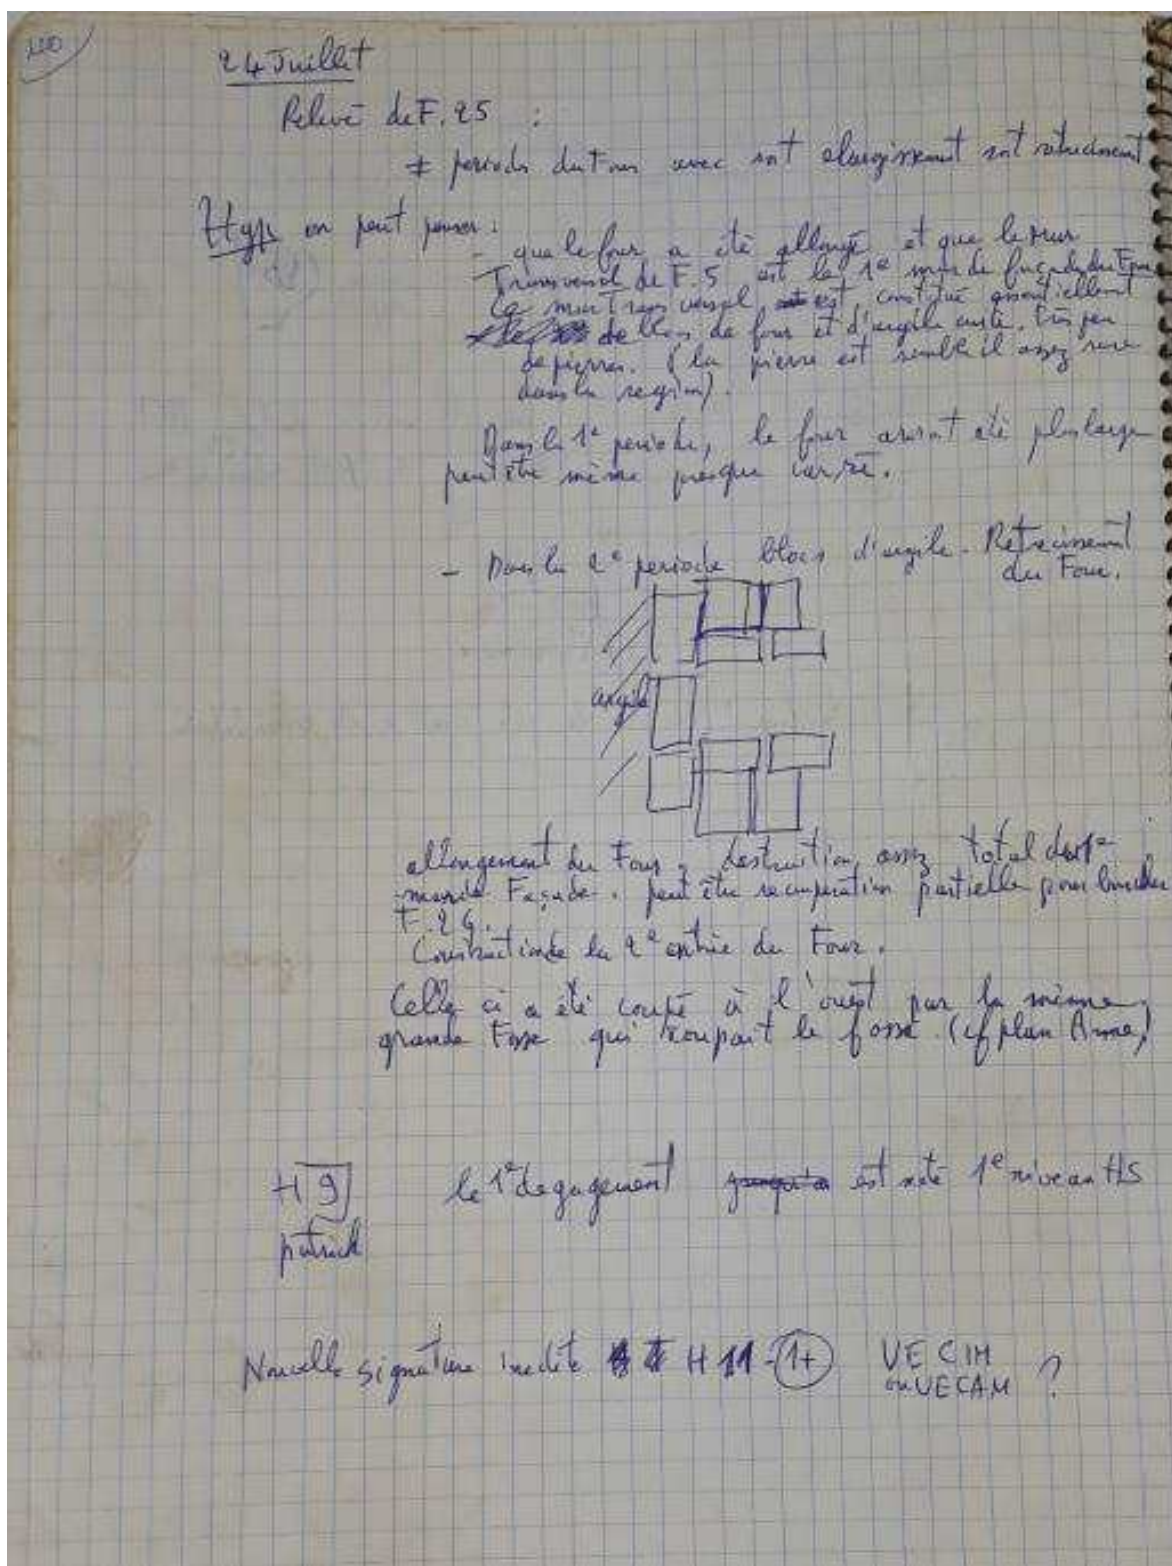 24 Juillet
Relevé de F. 25 :
≠ periodes avec soit elargissement soit retrecissement
Hyp on peut penser :
- que le four a été allongé et que le mur
Transversal de F. 5 est le 1e mur de façade du Four
Ce mur transversal est constitué essentiellement
de blocs de four et d'argile cuite, très peu
de pierres. (la pierre est semble il assez rare
dans la region).
Dans la 1e periode, le four aurait été plus large
peut être même presque carré.
- Dans la 2e periode blocs d'argile - Retrecissement
du Four.
argile
allongement du Four, destruction assez total du 1e
mur de Façade. peut être recuperation partielle pour boucher
F. 26.
Construction de la 2e entrée du Four.
Celle ci a été coupé à l'ouest par la même
grande Fosse qui coupait le fossé. (cf plan Anne)
H 9 le 1e degagement est noté 1e niveau HS
patrick
Nouvelle signature inedite H 11 - 1+ VECIM
ou VECAM ?